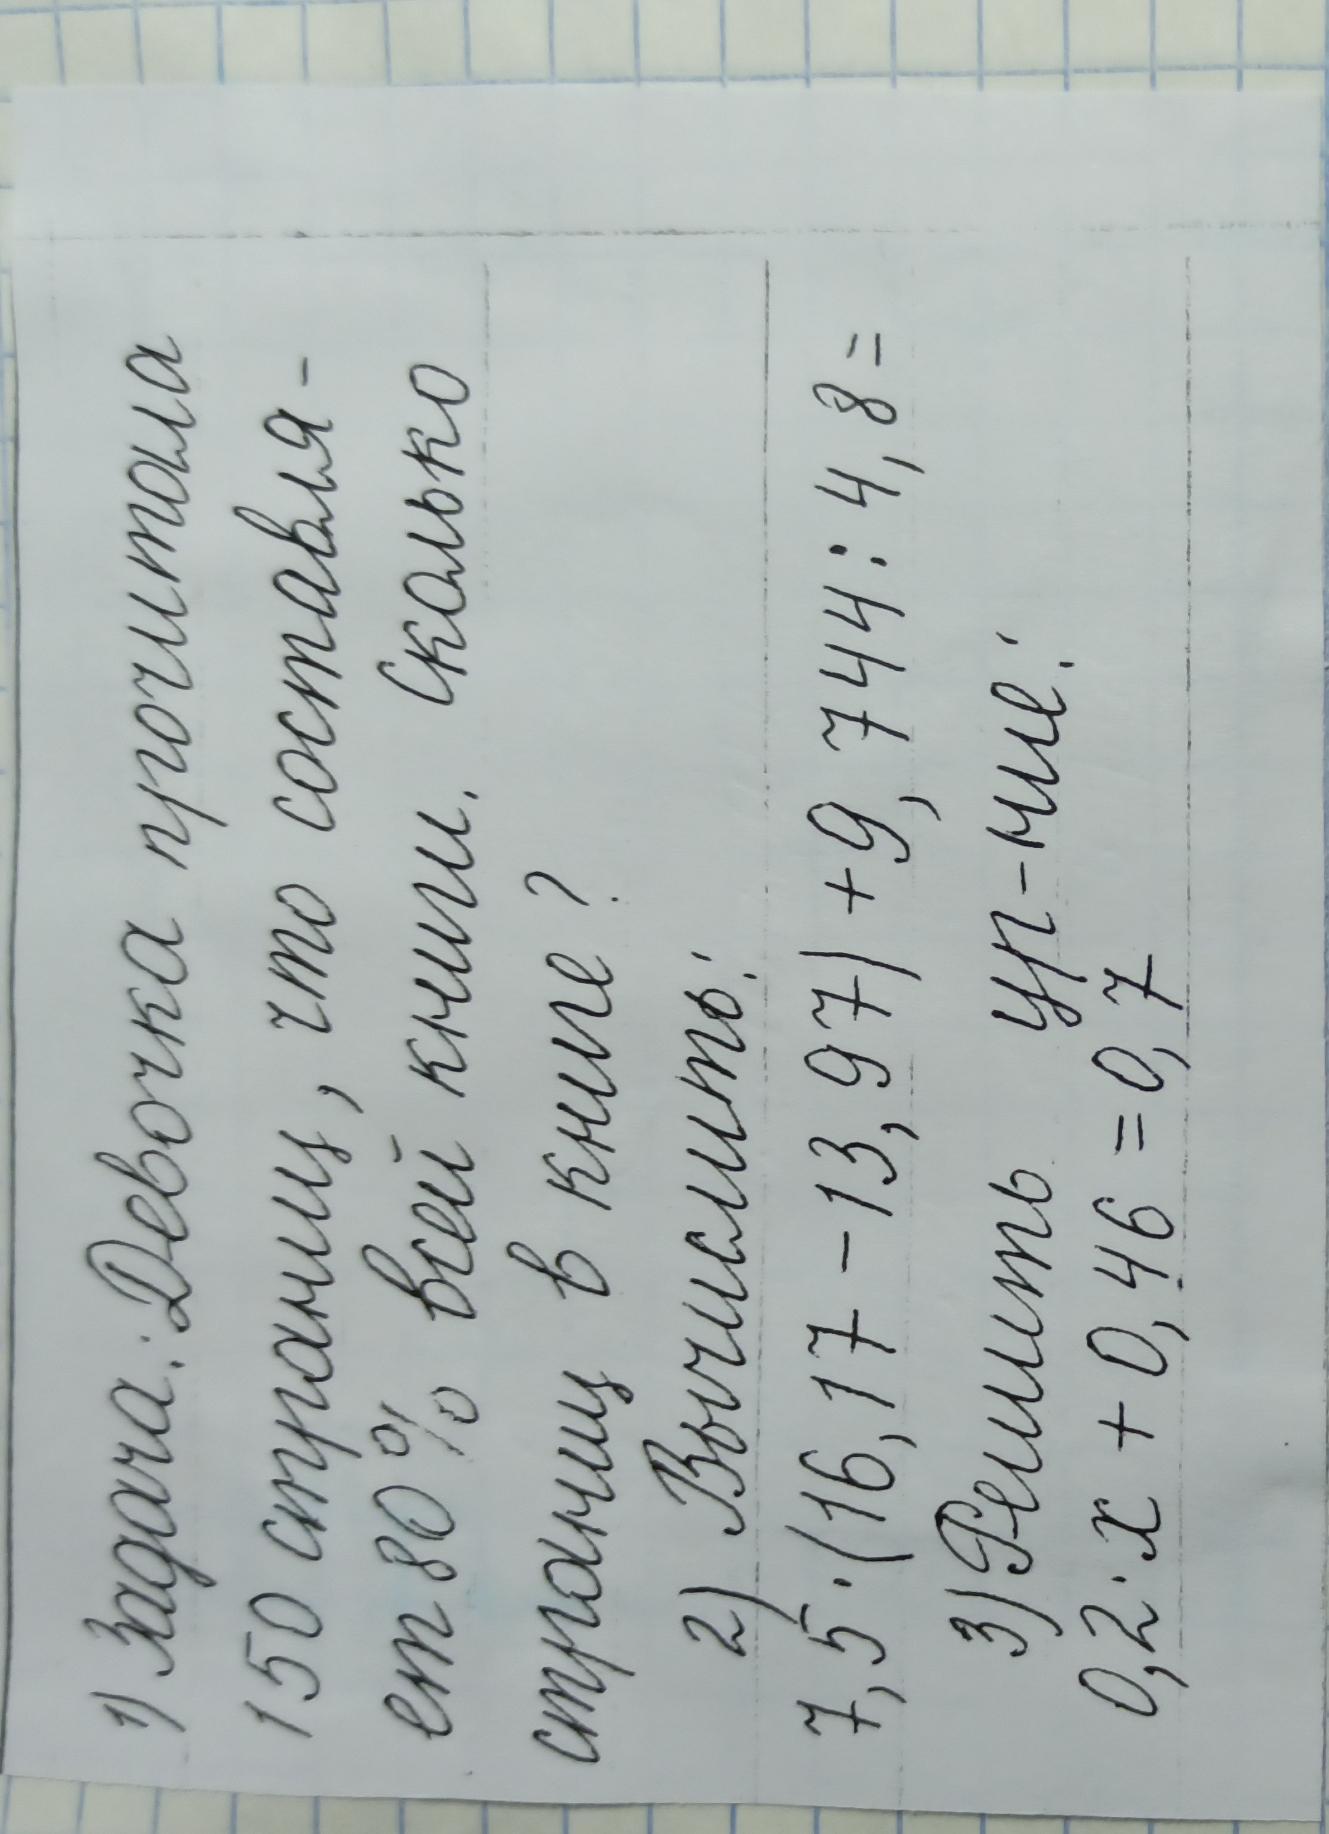 1) Задача: Девочка прочитала
150 страниц, что составля-
ет 80% всей книги. Сколько
страниц в книге?
2) Вычислить:
7,5·(16,17-13,97)+9,744:4,8=
3) Решить ур-ние:
0,2·x+0,46=0,7